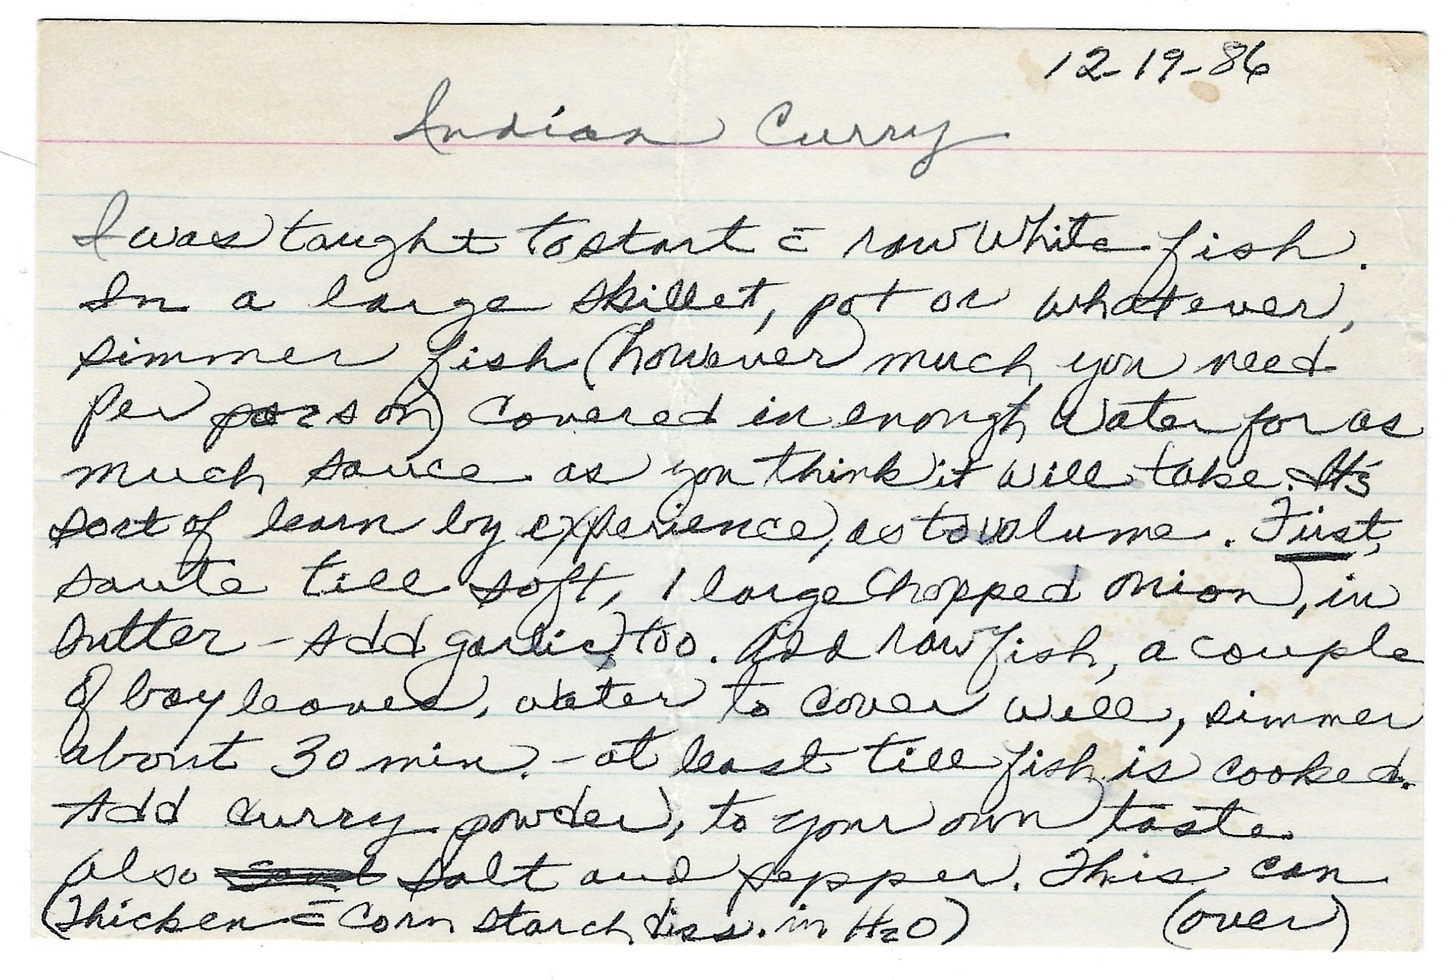 12-19-86
Indian Curry
I was taught to start c̄ raw white fish.
In a large skillet, pot or whatever,
simmer fish (however much you need
per person) covered in enough water for as
much sauce as you think it will take. It's
sort of learn by experience, as to volume. First,
saute till soft, 1 large chopped onion, in
butter - Add garlic, too. Add raw fish, a couple
of bay leaves, water to cover well, simmer
about 30 min. - at least till fish is cooked.
Add curry powder, to your own taste.
Also salt and pepper. This can
(Thicken c̄ Corn starch diss. in H2O) (over)